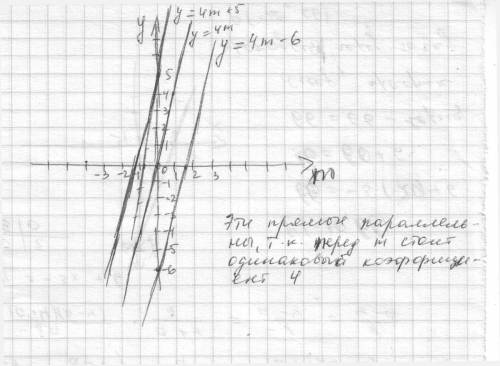 y
y = 4m + 5
y = 4m
y = 4m - 6
5
4
3
2
1
-3 -2 -1 0 1 2 3 m
-1
-2
-3
-4
-5
-6
Эти прямые параллель-
ны, т.к. перед m стоит
одинаковый коэффици-
ент 4